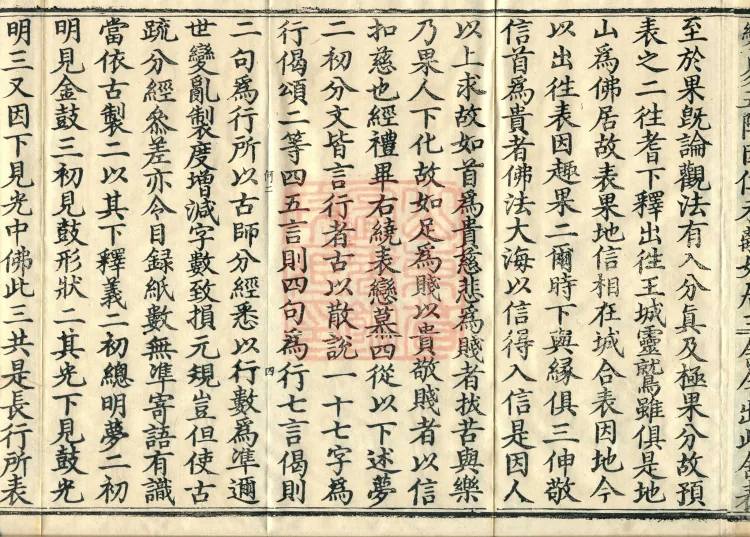 至於果既論觀法有入分眞及極果分故預
表之二往耆下釋出往王城靈鷲雖俱是地
山爲佛居故表果地信相在城合表因地今
以出往表因趣果二爾時下與緣俱三伸敬
信首爲貴者佛法大海以信得入信是因人
以上求故如首爲貴慈悲爲賤者拔苦與樂
乃果人下化故如足爲賤以貴敬賤者以信
扣慈也經禮畢右繞表戀慕四從以下述夢
二初分文皆言行者古以散說一十七字爲
行偈頌二等四五言則四句爲行七言偈則
何二 四
二句爲行所以古師分經悉以行數爲準邇
世變亂製度增減字數致損元規豈但使古
疏分經叅差亦令目録紙數無準寄語有識
當依古製二以其下釋義二初總明夢二初
明見金鼓三初見鼓形狀二其光下見鼓光
明三又因下見光中佛此三共是長行所表